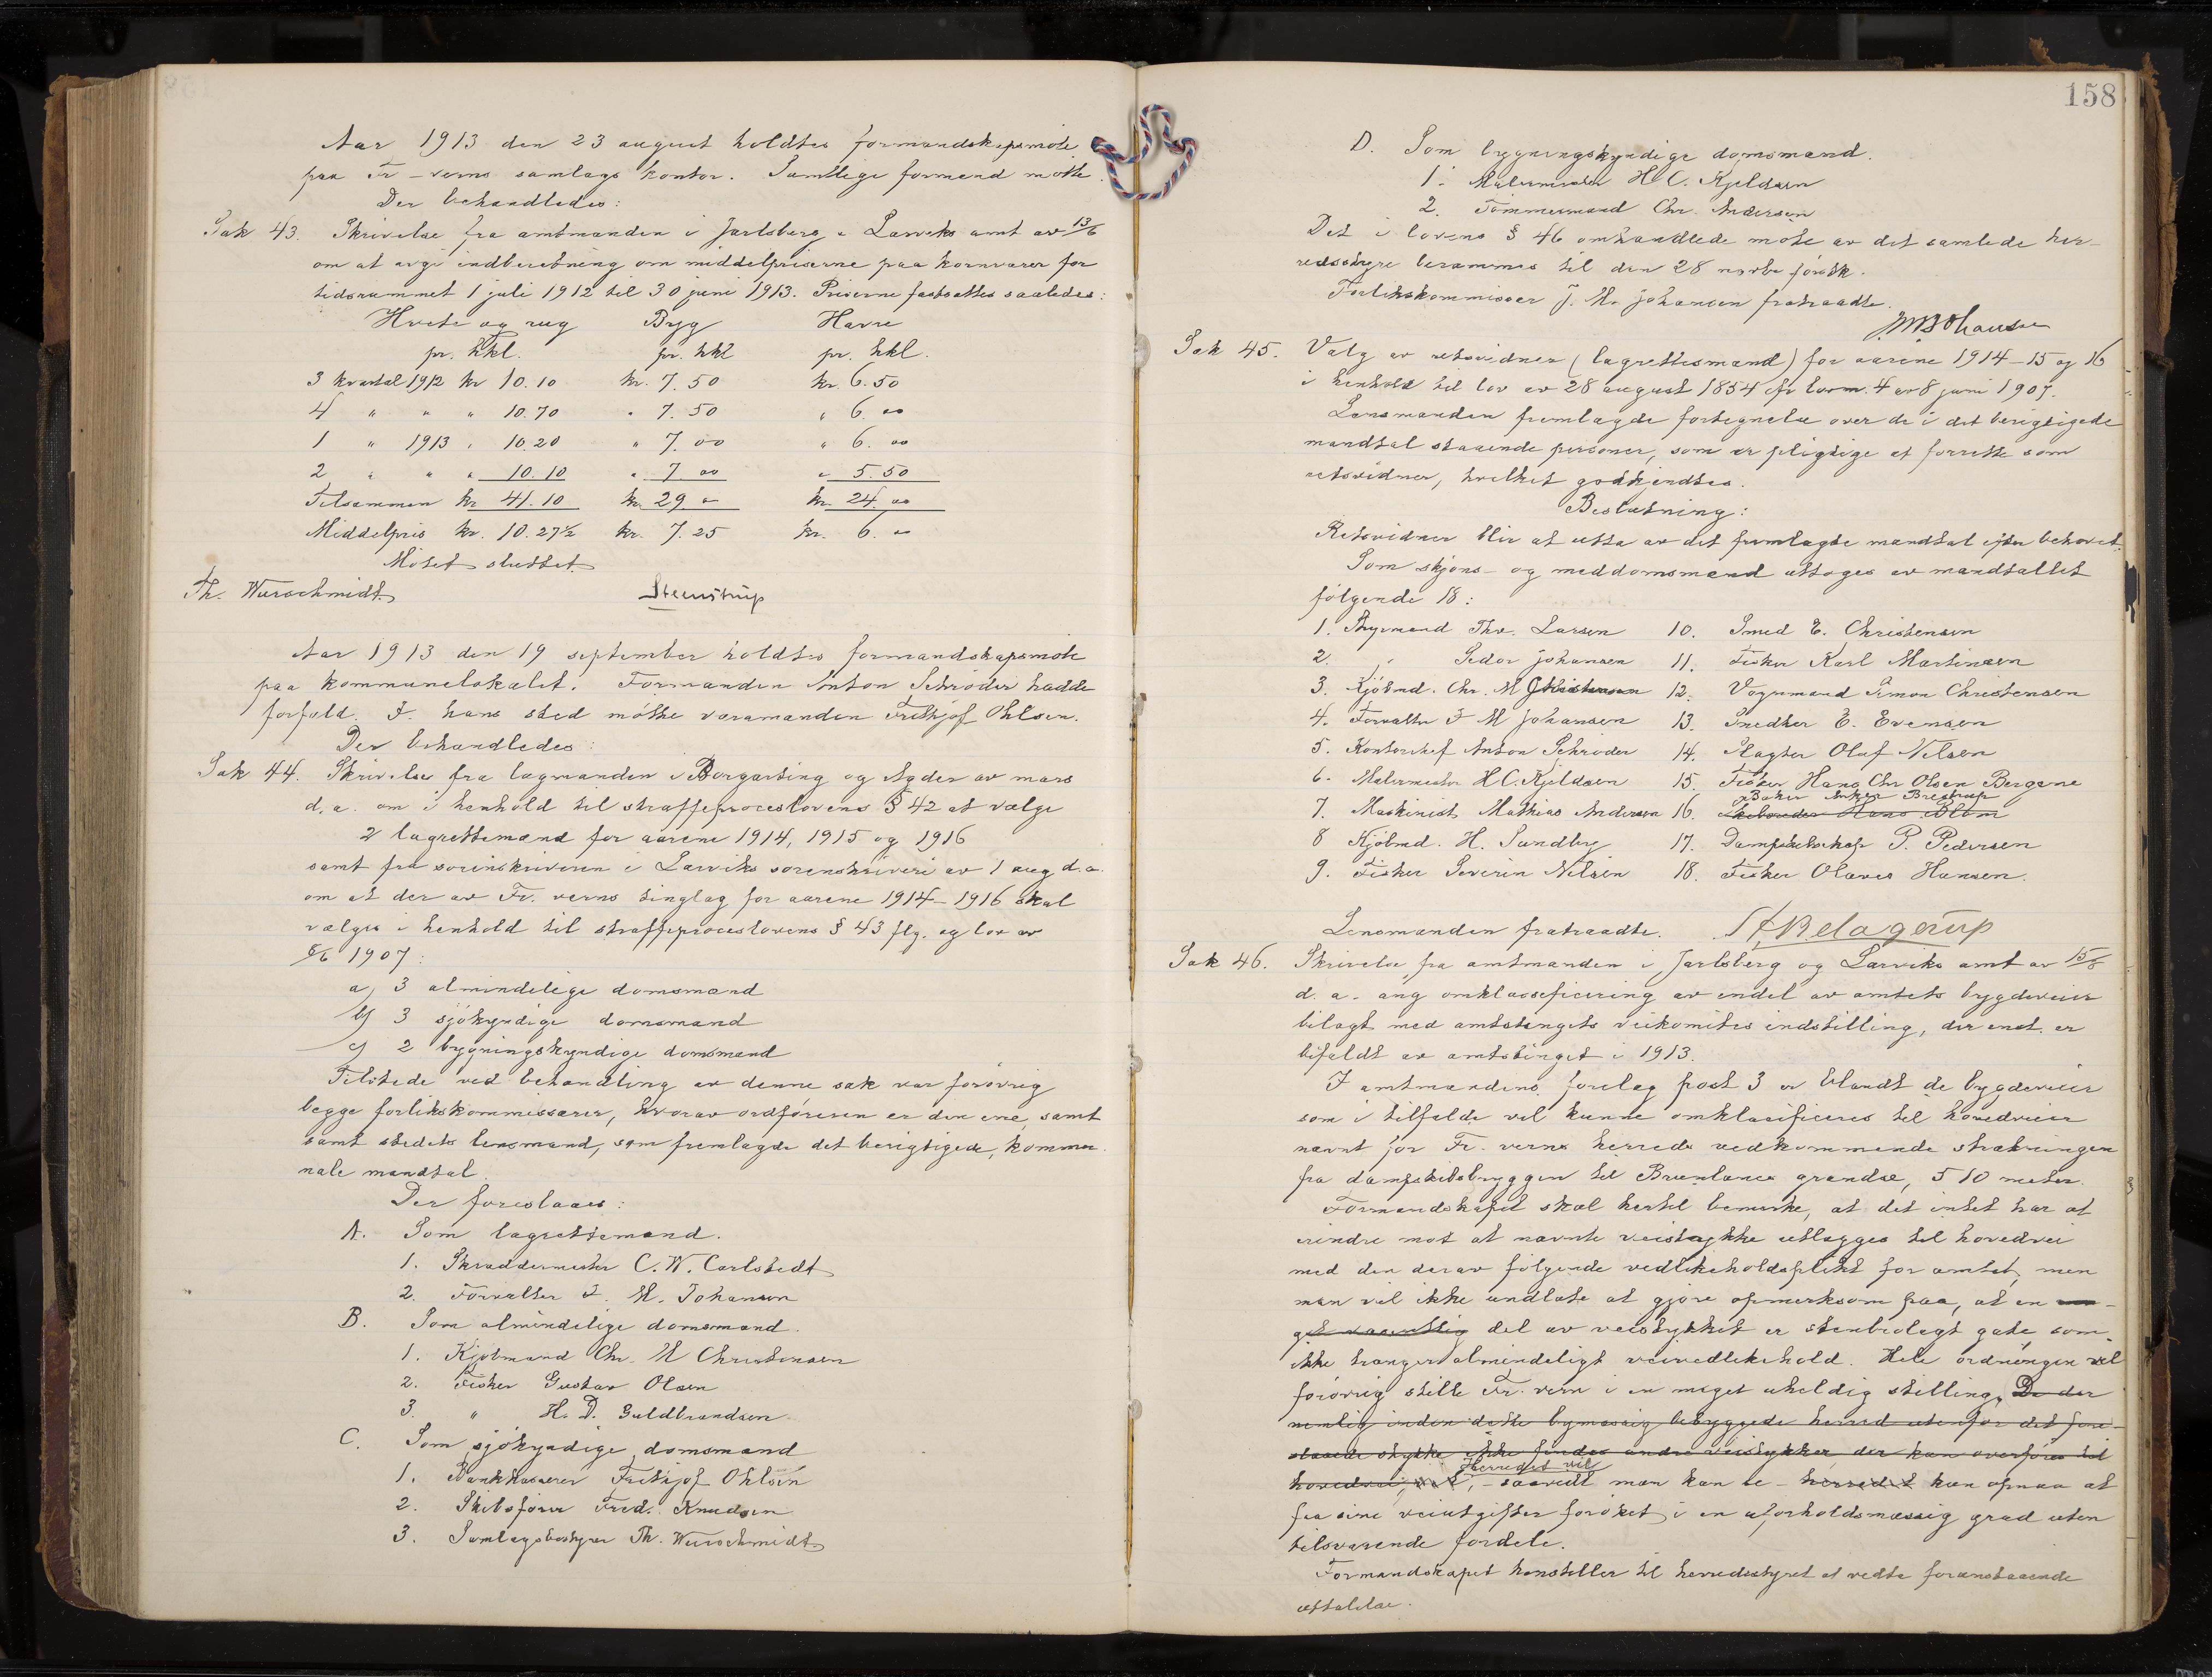 Aar 1913 den 23 august holdtes formandskapsmøte
paa Fr-verns samlags kontor. Samtlige formænd møtte.
Der behandledes:
Sak 43. Skrivelse fra amtmanden i Jarlsberg & Larviks amt av 13/6
om at avgi indberetning om middelpriserne paa kornvarer for
tidsrummet 1 juli 1912 til 30 juni 1913. Priserne fastsattes saaledes:
Hvete og rug Byg Havre
pr. hkl. pr. hkl pr. hkl.
3 kvartal 1912 kr 10.10 kr. 7.50 kr. 6.50
4 " " " 10.70 " 7.50 " 6.00
1 " 1913 " 10.20 " 7.00 " 6.00
2 " " " 10.10 " 7.00 " 5.50
Tilsammen kr 41.10 kr. 29 " kr. 24.00
Middelpris kr. 10.27½ kr. 7.25 kr. 6. "
Møtet sluttet.
Th. Wurschmidt Steenstrup
Aar 1913 den 19 september holdtes formandskapsmøte
paa kommunelokalet. Formanden Anton Schrøder hadde
forfald. I hans sted møtte varamanden Frithjof Ohlsen.
Der behandledes:
Sak 44. Skrivelse fra lagmanden i Borgarting og Agder av mars
d.a. om i henhold til straffeproceslovens § 42 at vælge
2 lagrettemænd for aarene 1914, 1915 og 1916
samt fra sorenskriveren i Larviks sorenskriveri av 1 aug d.a.
om at der av Fr. verns tinglag for aarene 1914-1916 skal
vælges i henhold til straffeproceslovens § 43 flg. og lov av
8/6 1907:
a) 3 almindelige domsmænd
b) 3 sjøkyndige domsmænd
c) 2 bygningskyndige domsmænd
Tilstede ved behandling av denne sak var forøvrig
begge forlikskommissærer, hvorav ordføreren er den ene, samt
samt stedets lensmand, som fremlagde det berigtigede, kommu-
nale mandtal.
Der foreslaaes:
A. Som lagrettemænd.
1. Skræddermester C. W. Carlstedt
2. Forvalter J. M. Johansen
B. Som almindelige domsmænd.
1. Kjøbmand Chr. M Christensen
2. Fisker Gustav Olsen
3. " H. D. Guldbrandsen
C. Som sjøkyndige domsmænd
1. Bankkasserer Frithjof Ohlsen
2. Skibsfører Fred. Knudsen
3. Samlagsbestyrer Th. Wurschmidt
158
D. Som bygningskyndige domsmænd.
1. Malermester H C. Kjeldsen
2. Tømmermand Chr. Andersen
Det i lovens § 46 omhandlede møte av det samlede her-
redsstyre berammes til den 28 novbr førstk.
Forlikskommissær J. M. Johansen fratraadte.
J M Johansen
Sak 45. Valg av retsvidner (lagrettesmænd) for aarene 1914-15 og 16
i henhold til lov av 28 august 1854 cfr lov nr. 4 av 8 juni 1907.
Lensmanden fremlagde fortegnelse over de i det berigtigede
mandtal staaende personer, som er pligtige at forrette som
retsvidner, hvilket godkjendtes.
Beslutning:
Retsvidner blir at utta av det fremlagde mandtal efter behovet.
Som skjøns- og meddomsmænd uttoges av mandtallet
følgende 18:
1. Styrmand Thv. Larsen 10. Smed E. Christensen
2. " Peder Johansen 11. Fisker Karl Martinsen
3. Kjøbmd. Chr. M Christensen 12. Vognmand Simon Christensen
4. Forvalter J M Johansen 13. Snedker E. Evensen
5. Kontorchef Anton Schrøder 14. Slagter Olaf Nilsen
6. Malermester H C. Kjeldsen 15. Fisker Hans Chr Olsen Bergene
Baker Anker Brestrup
7. Maskinist Mathias Andersen 16. Skibsreder Hans Blom
8 Kjøbmd. H. Sundby 17. Dampskibsekspr P. Pedersen
9. Fisker Severin Nilsen 18. Fisker Olaves Hansen.
Lensmanden fratraadte.
Sak 46. Skrivelse fra amtmanden i Jarlsberg og Larviks amt av 15/8
d.a. ang omklassificering av endel av amtets bygdeveier
bilagt med amtstingets veikomites indstilling, der enst. er
bifaldt av amtstinget i 1913.
I amtmandens forelæg post 3 er blandt de bygdeveier
som i tilfælde vil kunne omklasificeres til hovedveier
nævnt for Fr. verns herreds vedkommende strækningen
fra dampskibsbryggen til Brunlanes grændse, 510 meter.
Formandskapet skal hertil bemerke, at det intet har at
erindre mot at nævnte veistykke utlægges til hovedvei
med den derav følgende vedlikeholdsplikt for amtet, men
man vil ikke undlate at gjøre opmerksom paa, at en
get væsentlig del av veistykket er stenbrolagt gate som
ikke trænger almindeligt veivedlikehold. Hele ordningen vil
forøvrig stille Fr. vern i en meget uheldig stilling. Da der
nemlig inden dette bymæssig bebyggede herred utenfor det fore-
slaaede stykke ikke findes andre veistykker, der kan overføres til
Herredet vil
hovedvei, vil, - saavidt man kan se - herredet kun opnaa at
faa sine veiutgifter forøket i en uforholdsmæssig grad uten
tilsvarende fordele.
Formandskapet henstiller til herredsstyret at vedta foranstaaende
uttalelse.